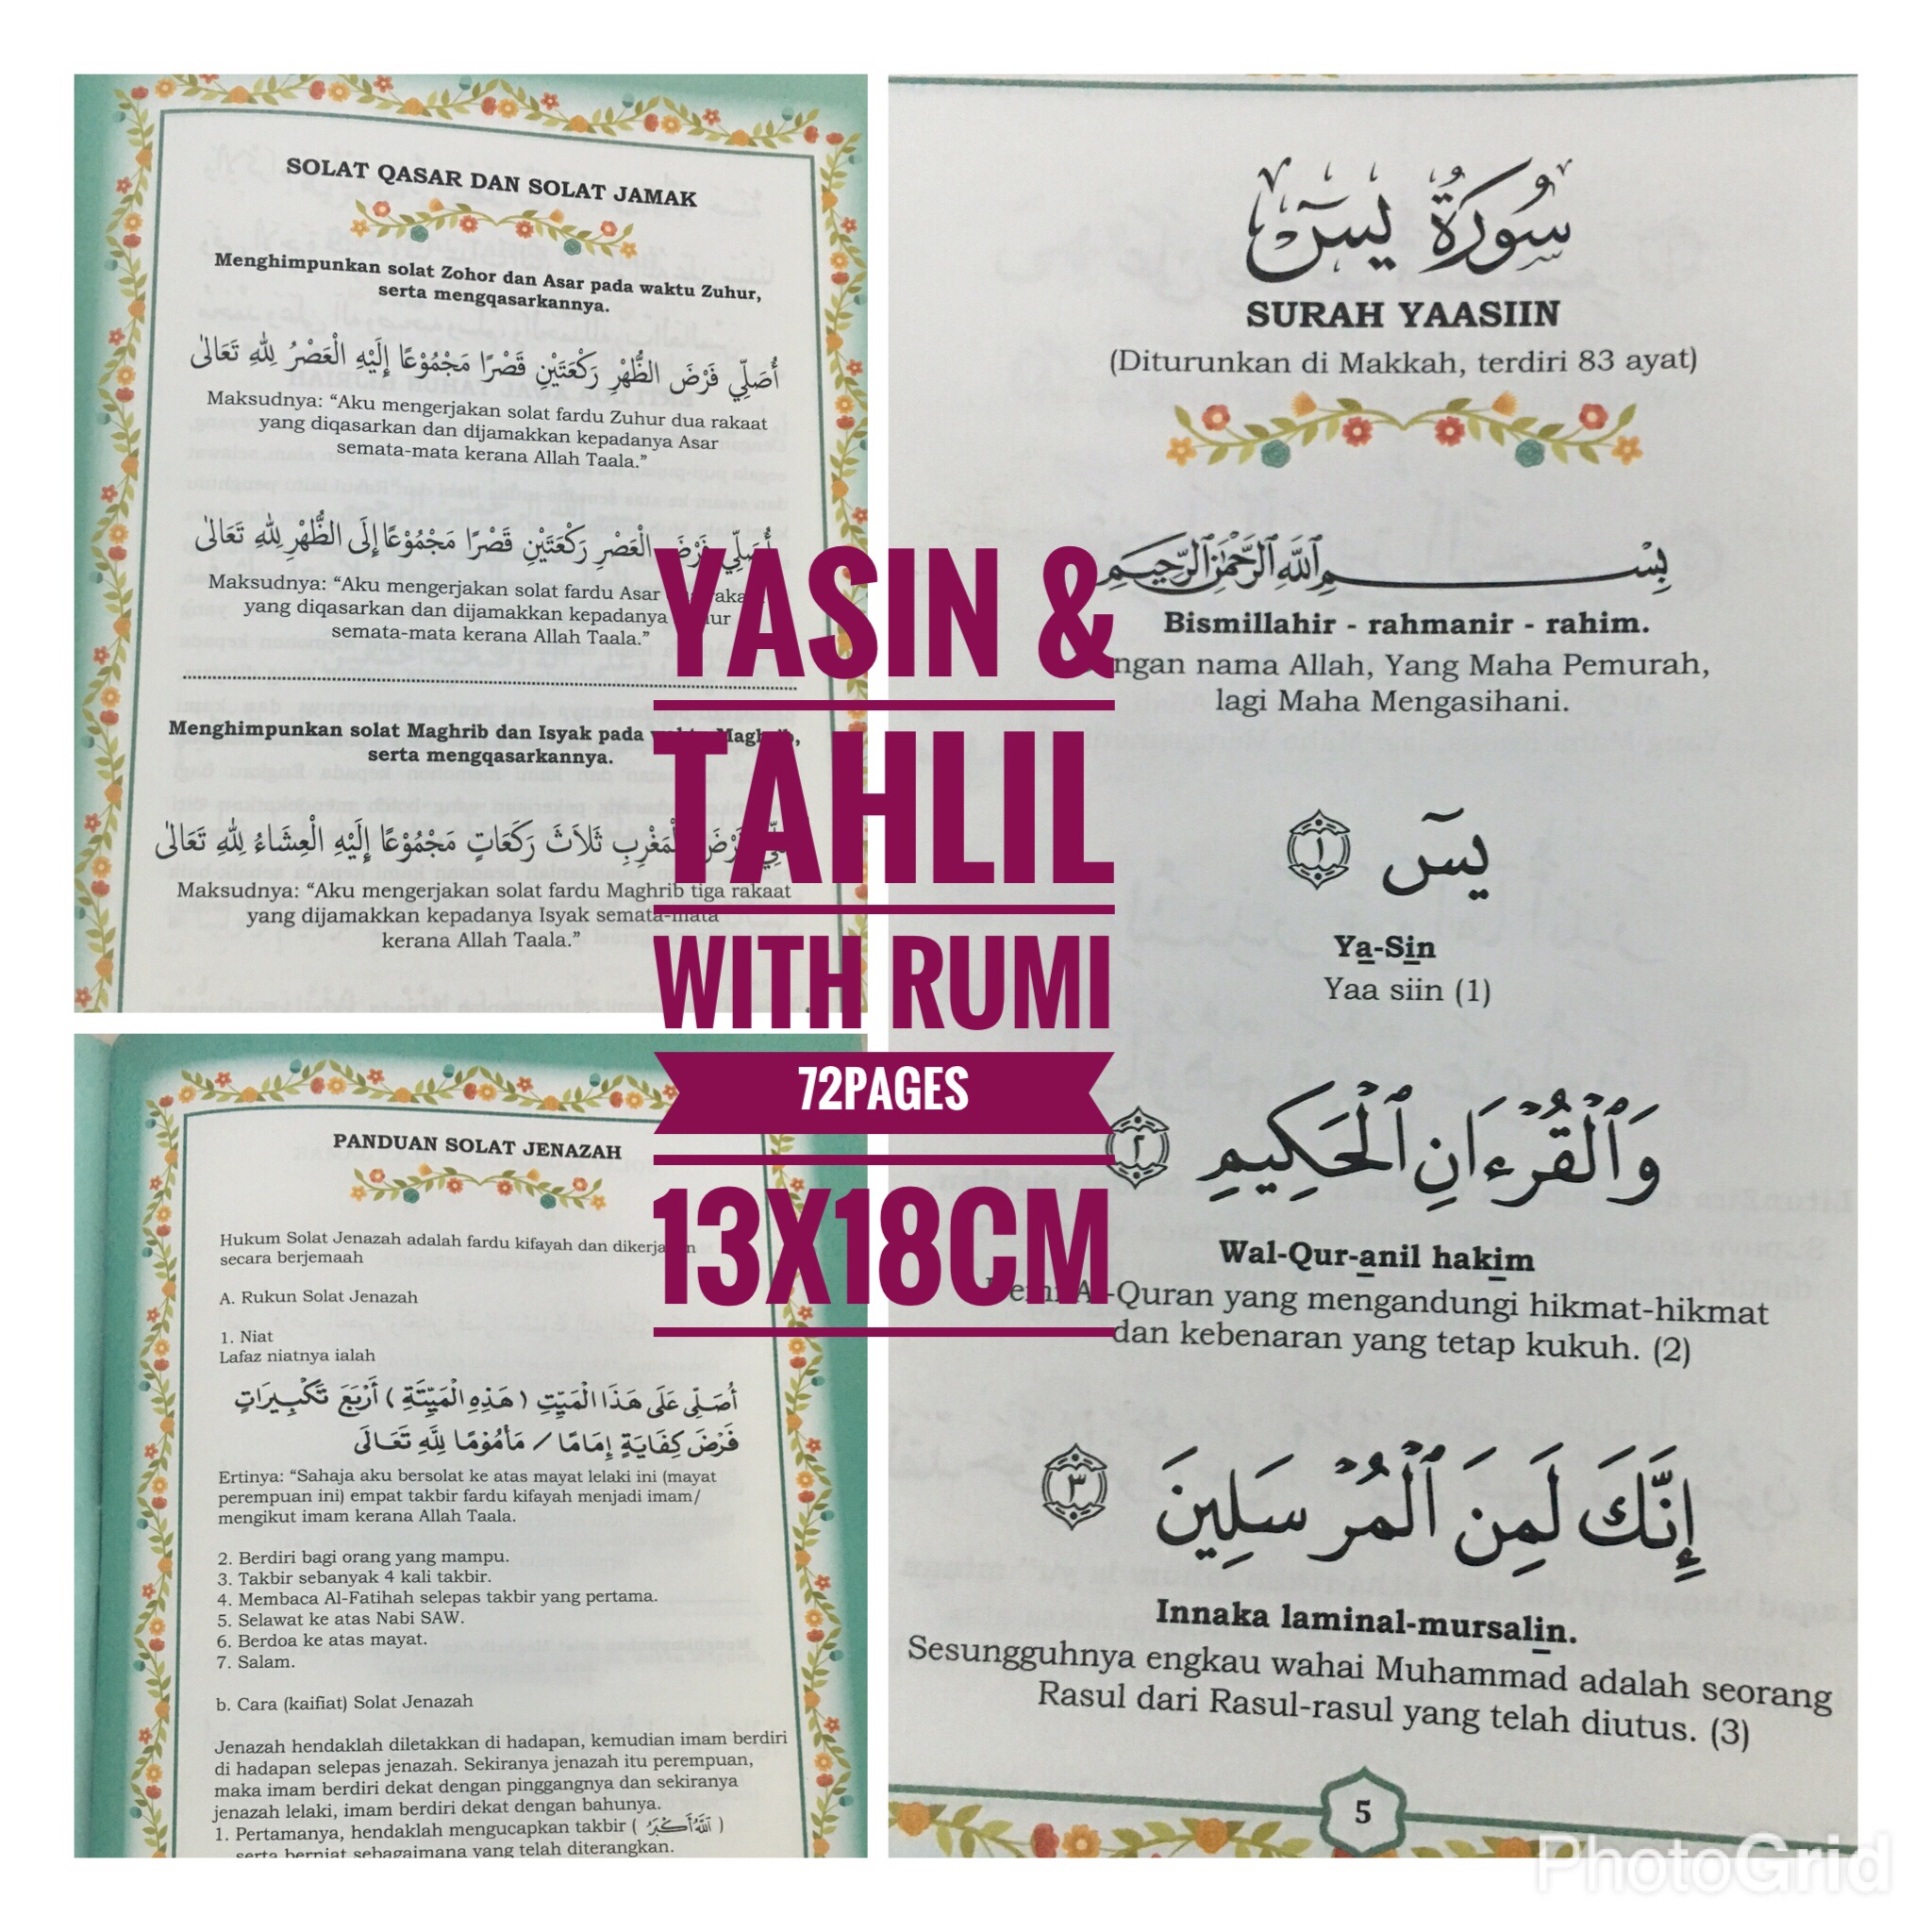 SOLAT QASAR DAN SOLAT JAMAK
Menghimpunkan solat Zohor dan Asar pada waktu Zuhur,
serta mengqasarkannya.
أُصَلِّي فَرْضَ الظُّهْرِ رَكْعَتَيْنِ قَصْرًا مَجْمُوْعًا إِلَيْهِ الْعَصْرُ لِلّٰهِ تَعَالٰى
Maksudnya: “Aku mengerjakan solat fardu Zuhur dua rakaat
yang diqasarkan dan dijamakkan kepadanya Asar
semata-mata kerana Allah Taala.”
أُصَلِّي فَرْضَ الْعَصْرِ رَكْعَتَيْنِ قَصْرًا مَجْمُوْعًا إِلَى الظُّهْرِ لِلّٰهِ تَعَالٰى
Maksudnya: “Aku mengerjakan solat fardu Asar
yang diqasarkan dan dijamakkan kepadanya
semata-mata kerana Allah Taala.”
Menghimpunkan solat Maghrib dan Isyak pada Maghrib,
serta mengqasarkannya.
الْمَغْرِبِ ثَلَاثَ رَكَعَاتٍ مَجْمُوْعًا إِلَيْهِ الْعِشَاءُ لِلّٰهِ تَعَالٰى
Maksudnya: “Aku mengerjakan solat fardu Maghrib tiga rakaat
yang dijamakkan kepadanya Isyak semata-mata
kerana Allah Taala.”
PANDUAN SOLAT JENAZAH
Hukum Solat Jenazah adalah fardu kifayah dan dikerjakan
secara berjemaah
A. Rukun Solat Jenazah
1. Niat
Lafaz niatnya ialah
أُصَلِّى عَلَى هَذَا الْمَيِّتِ ( هَذِهِ الْمَيِّتَةِ ) أَرْبَعَ تَكْبِيرَاتٍ
فَرْضَ كِفَايَةٍ إِمَامًا / مَأْمُوْمًا لِلَّهِ تَعَالَى
Ertinya: “Sahaja aku bersolat ke atas mayat lelaki ini (mayat
perempuan ini) empat takbir fardu kifayah menjadi imam/
mengikut imam kerana Allah Taala.
2. Berdiri bagi orang yang mampu.
3. Takbir sebanyak 4 kali takbir.
4. Membaca Al-Fatihah selepas takbir yang pertama.
5. Selawat ke atas Nabi SAW.
6. Berdoa ke atas mayat.
7. Salam.
b. Cara (kaifiat) Solat Jenazah
Jenazah hendaklah diletakkan di hadapan, kemudian imam berdiri
di hadapan selepas jenazah. Sekiranya jenazah itu perempuan,
maka imam berdiri dekat dengan pinggangnya dan sekiranya
jenazah lelaki, imam berdiri dekat dengan bahunya.
1. Pertamanya, hendaklah mengucapkan takbir ( اَللّٰهُ أَكْبَرُ )
serta berniat sebagaimana yang telah diterangkan.
YASIN &
TAHLIL
WITH RUMI
72PAGES
13X18CM
سُورَةُ يسٓ
SURAH YAASIIN
(Diturunkan di Makkah, terdiri 83 ayat)
بِسْمِ ٱللَّهِ ٱلرَّحْمَٰنِ ٱلرَّحِيمِ
Bismillahir - rahmanir - rahim.
Dengan nama Allah, Yang Maha Pemurah,
lagi Maha Mengasihani.
يسٓ ١
Ya-Sin
Yaa siin (1)
وَٱلْقُرْءَانِ ٱلْحَكِيمِ ٢
Wal-Qur-anil hakim
Demi Al-Quran yang mengandungi hikmat-hikmat
dan kebenaran yang tetap kukuh. (2)
إِنَّكَ لَمِنَ ٱلْمُرْسَلِينَ ٣
Innaka laminal-mursalin.
Sesungguhnya engkau wahai Muhammad adalah seorang
Rasul dari Rasul-rasul yang telah diutus. (3)
5
PhotoGrid